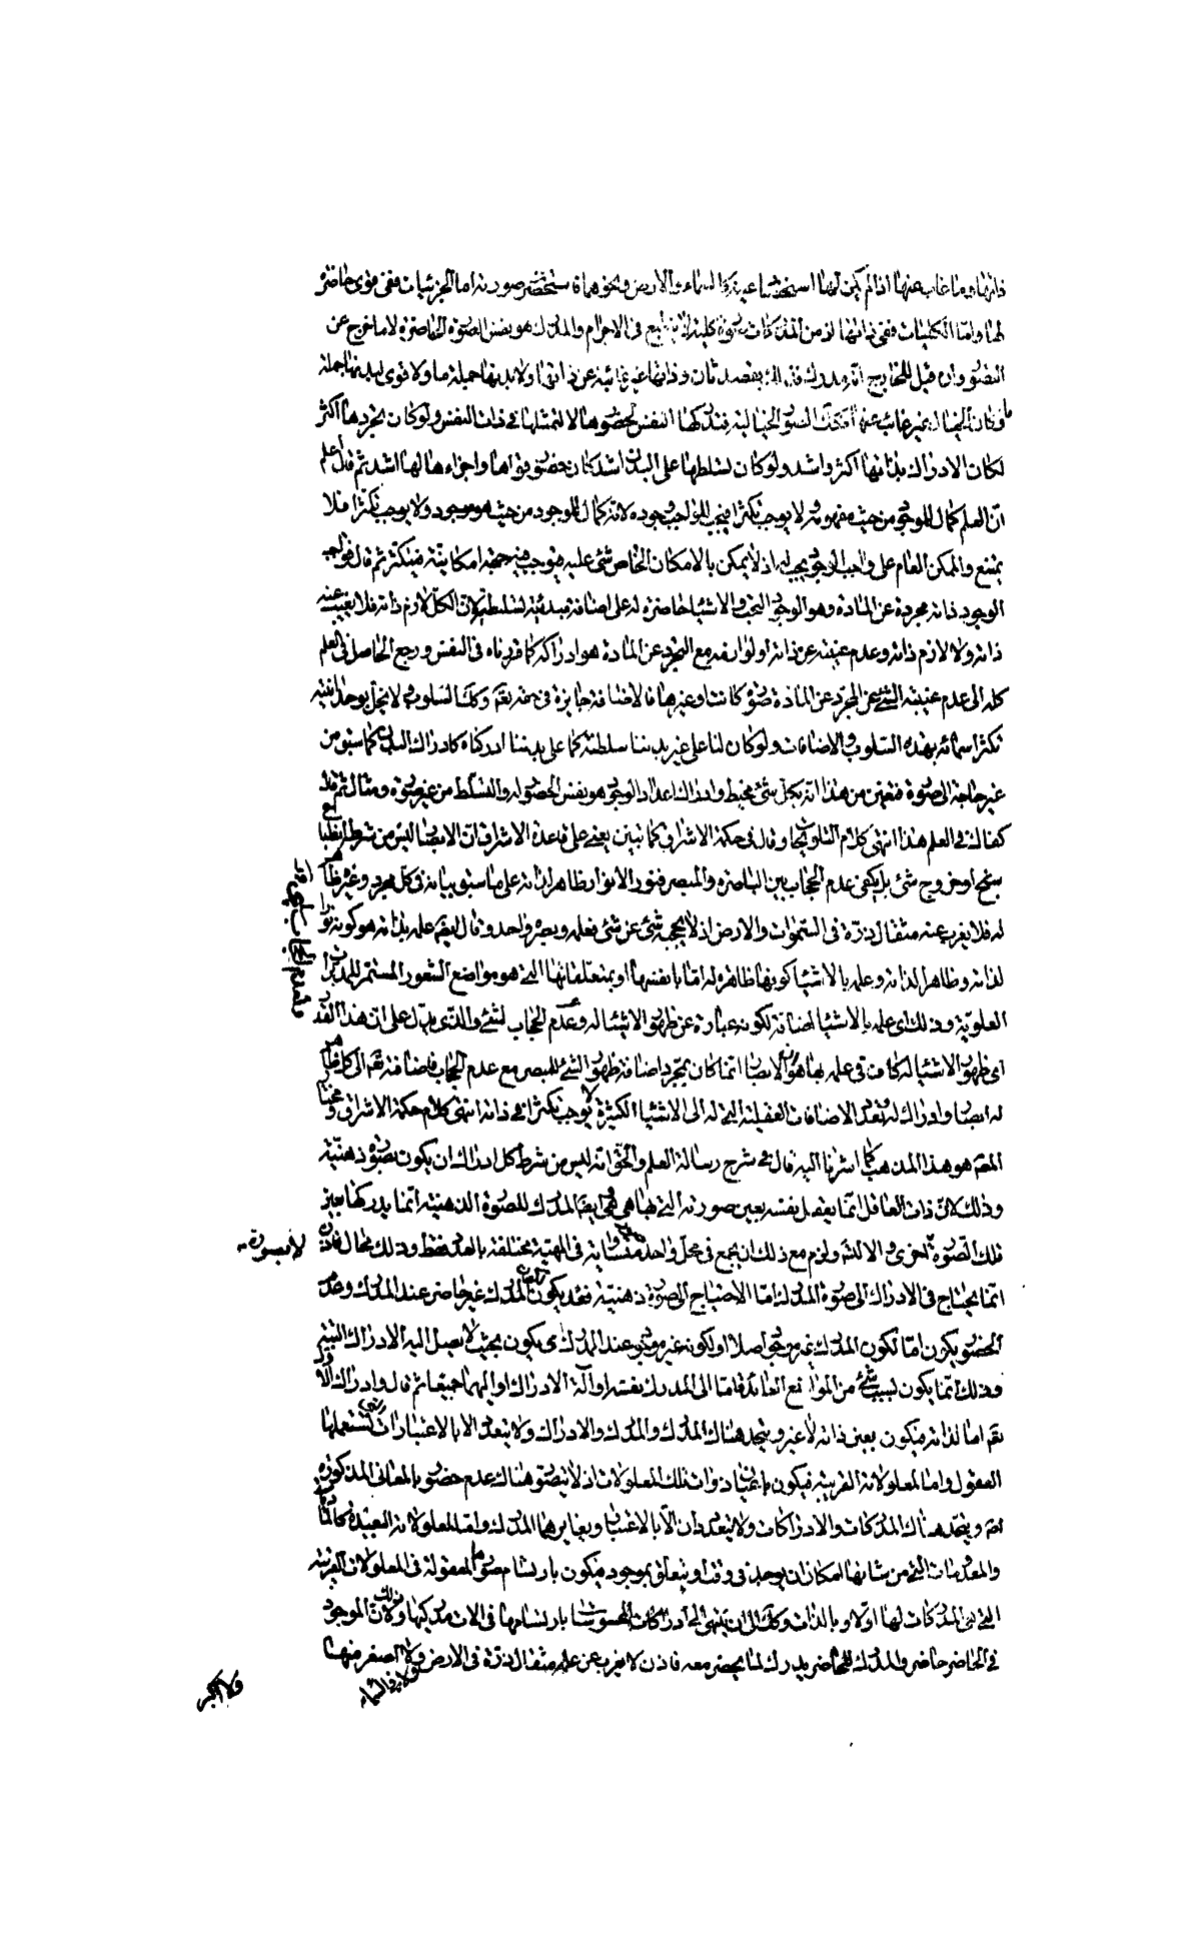 ذاتها وما غاب عنها اذا لم يكن لها استحضار عينه كالسماء والارض ونحوهما فاستحضر صورته اما الجزئيات ففى قوى حاضرة
لها واما الكليات ففى ذاتها اذ من المدركات كلية لا تنطبع فى الاجرام والمدرك هو نفس الصورة الحاضرة لا ما خرج عن
التصور وان قيل للخارج انه مدرك فذلك بقصد ثان وذاتها غير غائبة عن ذاتها ولا بدنها جملة ما ولا قوى لبدنها جملة ما
وكما ان الخيال غير غائب عنها فكذلك الصور الخيالية فتدركها النفس لحضورها لا لتمثلها فى ذات النفس ولو كان تجردها اكثر
لكان الادراك بذاتها اكثر واشد ولو كان تسلطها على البدن اشد كان حضور قواها واجزاءها لها اشد ثم قال اعلم
ان العلم كمال للوجود من حيث مفهومه ولا يوجب تكثرا فيجب للواجب وجوده لانه كمال للموجود من حيث هو موجود ولا يوجب تكثرا فلا
يمتنع والممكن العام على واجب الوجود يجب له اذ لا يمكن بالامكان الخاص شئ عليه فيوجب فيه جهة امكانية فيتكثر ثم قال فواجب
الوجود ذاته مجردة عن المادة وهو الوجود البحت والاشياء حاضرة له على اضافة مبدئية تسلطية لان الكل لازم ذاته فلا يغيب عنه
ذاته ولا لازم ذاته وعدم غيبته عن ذاته او لوازمه مع التجرد عن المادة هو ادراكه كما قررناه فى النفس ورجع الحاصل فى العلم
كله الى عدم غيبة الشئ عن المجرد عن المادة صورة كانت او غيرها فالاضافة جايزة فى حقه تعم وكذا السلوب ولا تخل بوحدانيته
تكثر اسمائه بهذه السلوب والاضافات ولو كان لنا على غير بدننا سلطنة كما على بدننا ادركناه كادراك البدن كما سبق من
غير حاجة الى صورة فتعين من هذا انه بكل شئ محيط وادراك اعداد الوجود هو نفس الحضور له والتسلط من غير صورة ومثال ثم قال
كفاك فى العلم هذا انتهى كلام التلويحات وقال فى حكمة الاشراق كما تبين يعنى على قاعدة الاشراق ان الابصار ليس من شرطه انطباع
شبح او خروج شئ بل يكفى عدم الحجاب بين الباصرة والمبصر فنور الانوار ظاهر لذاته على ما سبق بيانه فى كل مجرد وغيره ظاهر
له فلا يعزب عنه مثقال ذرة فى السموات والارض اذ لا يحجبه شئ عن شئ فعلمه وبصره واحد وقال ايضم علمه بذاته هو كونه نورا
لذاته وظاهرا لذاته وعلمه بالاشياء كونها ظاهرة له اما بانفسها او بمتعلقاتها التى هو مواضع الشعور المستمر للمدبرات
العلوية وذلك اى علمه بالاشياء اضافة لكونه عبارة عن ظهور الاشياء له وعدم الحجاب لشئ والذى يدل على ان هذا القدر
اى ظهور الاشياء له كاف فى علمه بها هو ان الابصار انما كان بمجرد اضافة ظهور الشئ للبصر مع عدم الحجاب فاضافته تعم الى كل ظاهر
له ابصار وادراك له وتعدد الاضافات العقلية التى له الى الاشياء الكثيرة لا يوجب تكثرا فى ذاته انتهى كلام حكمة الاشراق ومختار
المصم هو هذا المذهب كما اشرنا اليه قال فى شرح رسالة العلم والحق انه ليس من شرط كل ادراك ان يكون بصورة ذهنية
وذلك لان ذات العاقل انما يعقل نفسه بعين صورته التى بها هى هى وايضم المدرك للصورة الذهنية انما يدركها بعين
تلك الصورة لا بصورة اخرى والا لتسلسل ولزم مع ذلك ان يجمع فى محل واحد صور متساوية فى المهية مختلفة بالعدد فقط وذلك محال فاذن
انما يحتاج فى الادراك الى صورة المدرك اما الاحتياج الى صورة ذهنية فقد يكون حيث يكون المدرك غير حاضر عند المدرك وعدم
الحضور يكون اما لكون المدرك غير موجود اصلا او لكونه غير موجود عند المدرك اى يكون بحيث لا يصل اليه الادراك البتة
وذلك انما يكون لسبب شئ من الموانع العائدة اما الى المدرك نفسه او آلة الادراك او اليهما جميعا ثم قال وادراك الاول
تعم اما لذاته فيكون بعين ذاته لا غير ويتحد هناك المدرك والمدرك والادراك ولا يتعدد الا بالاعتبارات التى تستعملها
العقول واما لمعلولاته القريبة فيكون باعيان ذوات تلك المعلولات اذ لا يتصور هناك عدم حضور بالمعانى المذكورة
اصم ويتحد هناك المدركات والادراكات ولا يتعددان الا بالاعتبار ويغايرهما المدرك واما لمعلولاته البعيدة كالماديات
والمعدومات التى من شانها امكان ان يوجد فى وقت او يتعلق بموجود فيكون بارتسام صورها المعقولة فى المعلولات القريبة
التى هى المدركات لها اولا وبالذات وكذلك الى ان ينتهى الى ادراك المحسوسات بارتسامها فى الات مدركها وذلك لان الموجود
فى الحاضر حاضر والمدرك للحاضر يدرك لما يحضر معه فاذن لا يعزب عن علمه مثقال ذرة فى الارض ولا فى السماء ولا اصغر منها
ولا اكبر